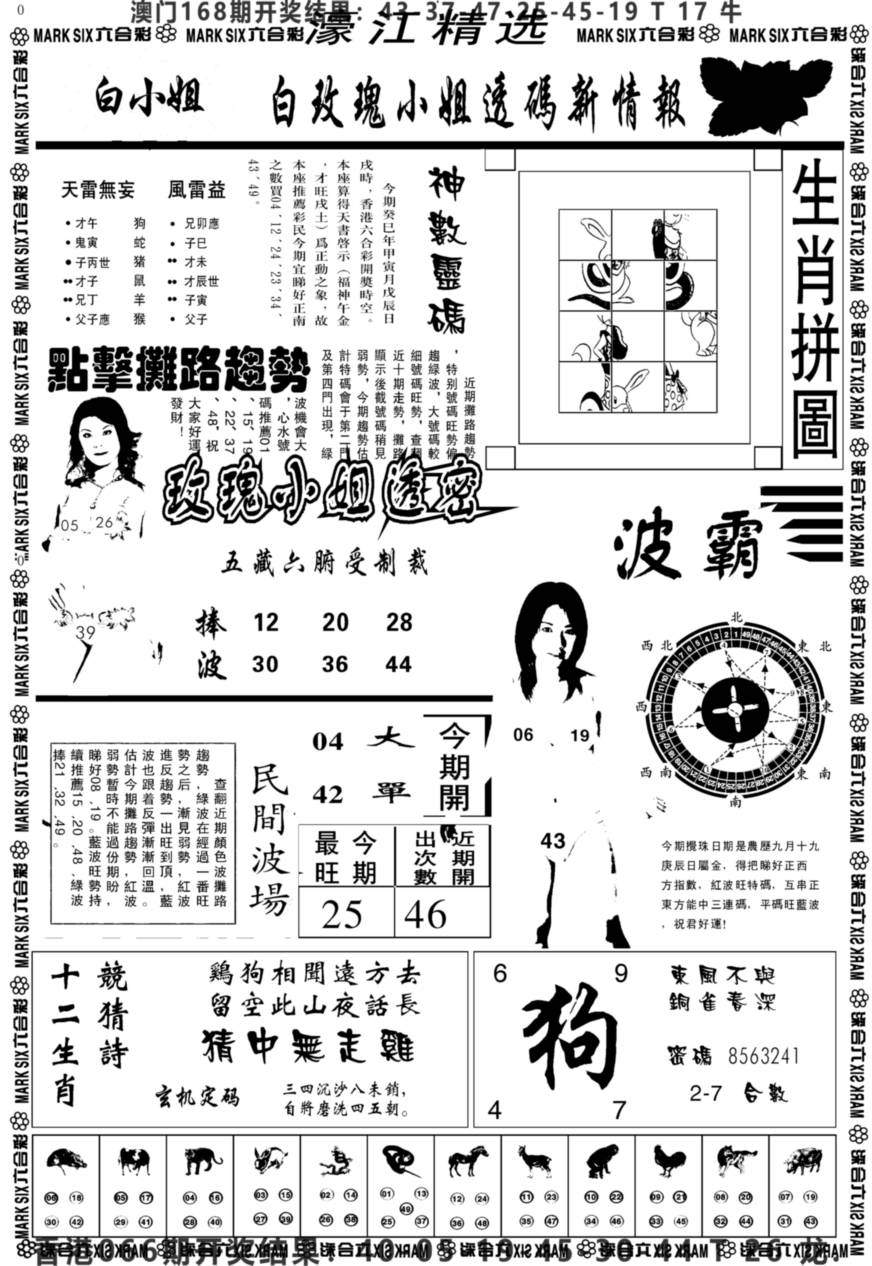 澳门168期开奖结果：43-37-47-25-45-19 T 17 牛
MARK SIX 六合彩 MARK SIX 六合彩 濠江精选 MARK SIX 六合彩 MARK SIX 六合彩
白小姐 白玫瑰小姐透碼新情報
天雷無妄 風雷益
• 才午 狗 • 兄卯應
• 鬼寅 蛇 • 子巳
• 子丙世 豬 •• 才未
•• 才子 鼠 •• 才辰世
•• 兄丁 羊 •• 子寅
• 父子應 猴 • 父子
神數靈碼
今期癸巳年甲寅月戊辰日
戌時，香港六合彩開獎時空。
本座算得天書啓示（福神午金
，才旺戌土）爲正動之象，故
本座推薦彩民今期宜睇好正南
之數買04、12、24、23、34、
43、49。
生肖拼圖
點擊攤路趨勢
近期攤路趨勢
，特別號碼旺勢偏
趨綠波，大號碼較
細號碼旺勢，查翻
近十期走勢，攤路
顯示後截號碼稍見
弱勢，今期趨勢估
計特碼會于第二門
及第四門出現，綠
波機會大
，心水號
碼推薦01
、15、19
、22、37
、48，祝
大家好運
發財！
玫瑰小姐透密
05 26
39
五藏六腑受制裁
捧 12 20 28
波 30 36 44
波霸
06 19
43
北
西北 東北
西 東
西南 東南
南
今期攪珠日期是農歷九月十九
庚辰日屬金，得把睇好正西
方指數，紅波旺特碼，互串正
東方能中三連碼，平碼旺藍波
，祝君好運!
查翻近期顏色攤路
趨勢，綠波在經過一波旺
勢之后，漸見弱勢，紅番藍
進反趨勢一出旺到頂，
波也跟着反彈漸漸回溫，
估計今期攤路趨勢紅波
弱勢暫時不能過份期盼，
睇好08、19。藍波旺勢持
續推薦15、20、48，綠波
捧21、32、49。
民間波場
04 大
42 單
今期開
今期最旺 近期開出次數
25 46
十二生肖 競猜詩
鷄狗相聞遠方去
留空此山夜話長
猜中無走雞
玄机定码
三四沉沙八未銷，
自將磨洗四五朝。
6 9
狗
4 7
東風不與
銅雀春深
密碼 8563241
2-7 合數
06 18 05 17 04 16 03 15 02 14 01 13 12 24 11 23 10 22 09 21 08 20 07 19
49
30 42 29 41 28 40 27 39 26 38 25 37 36 48 35 47 34 46 33 45 32 44 31 43